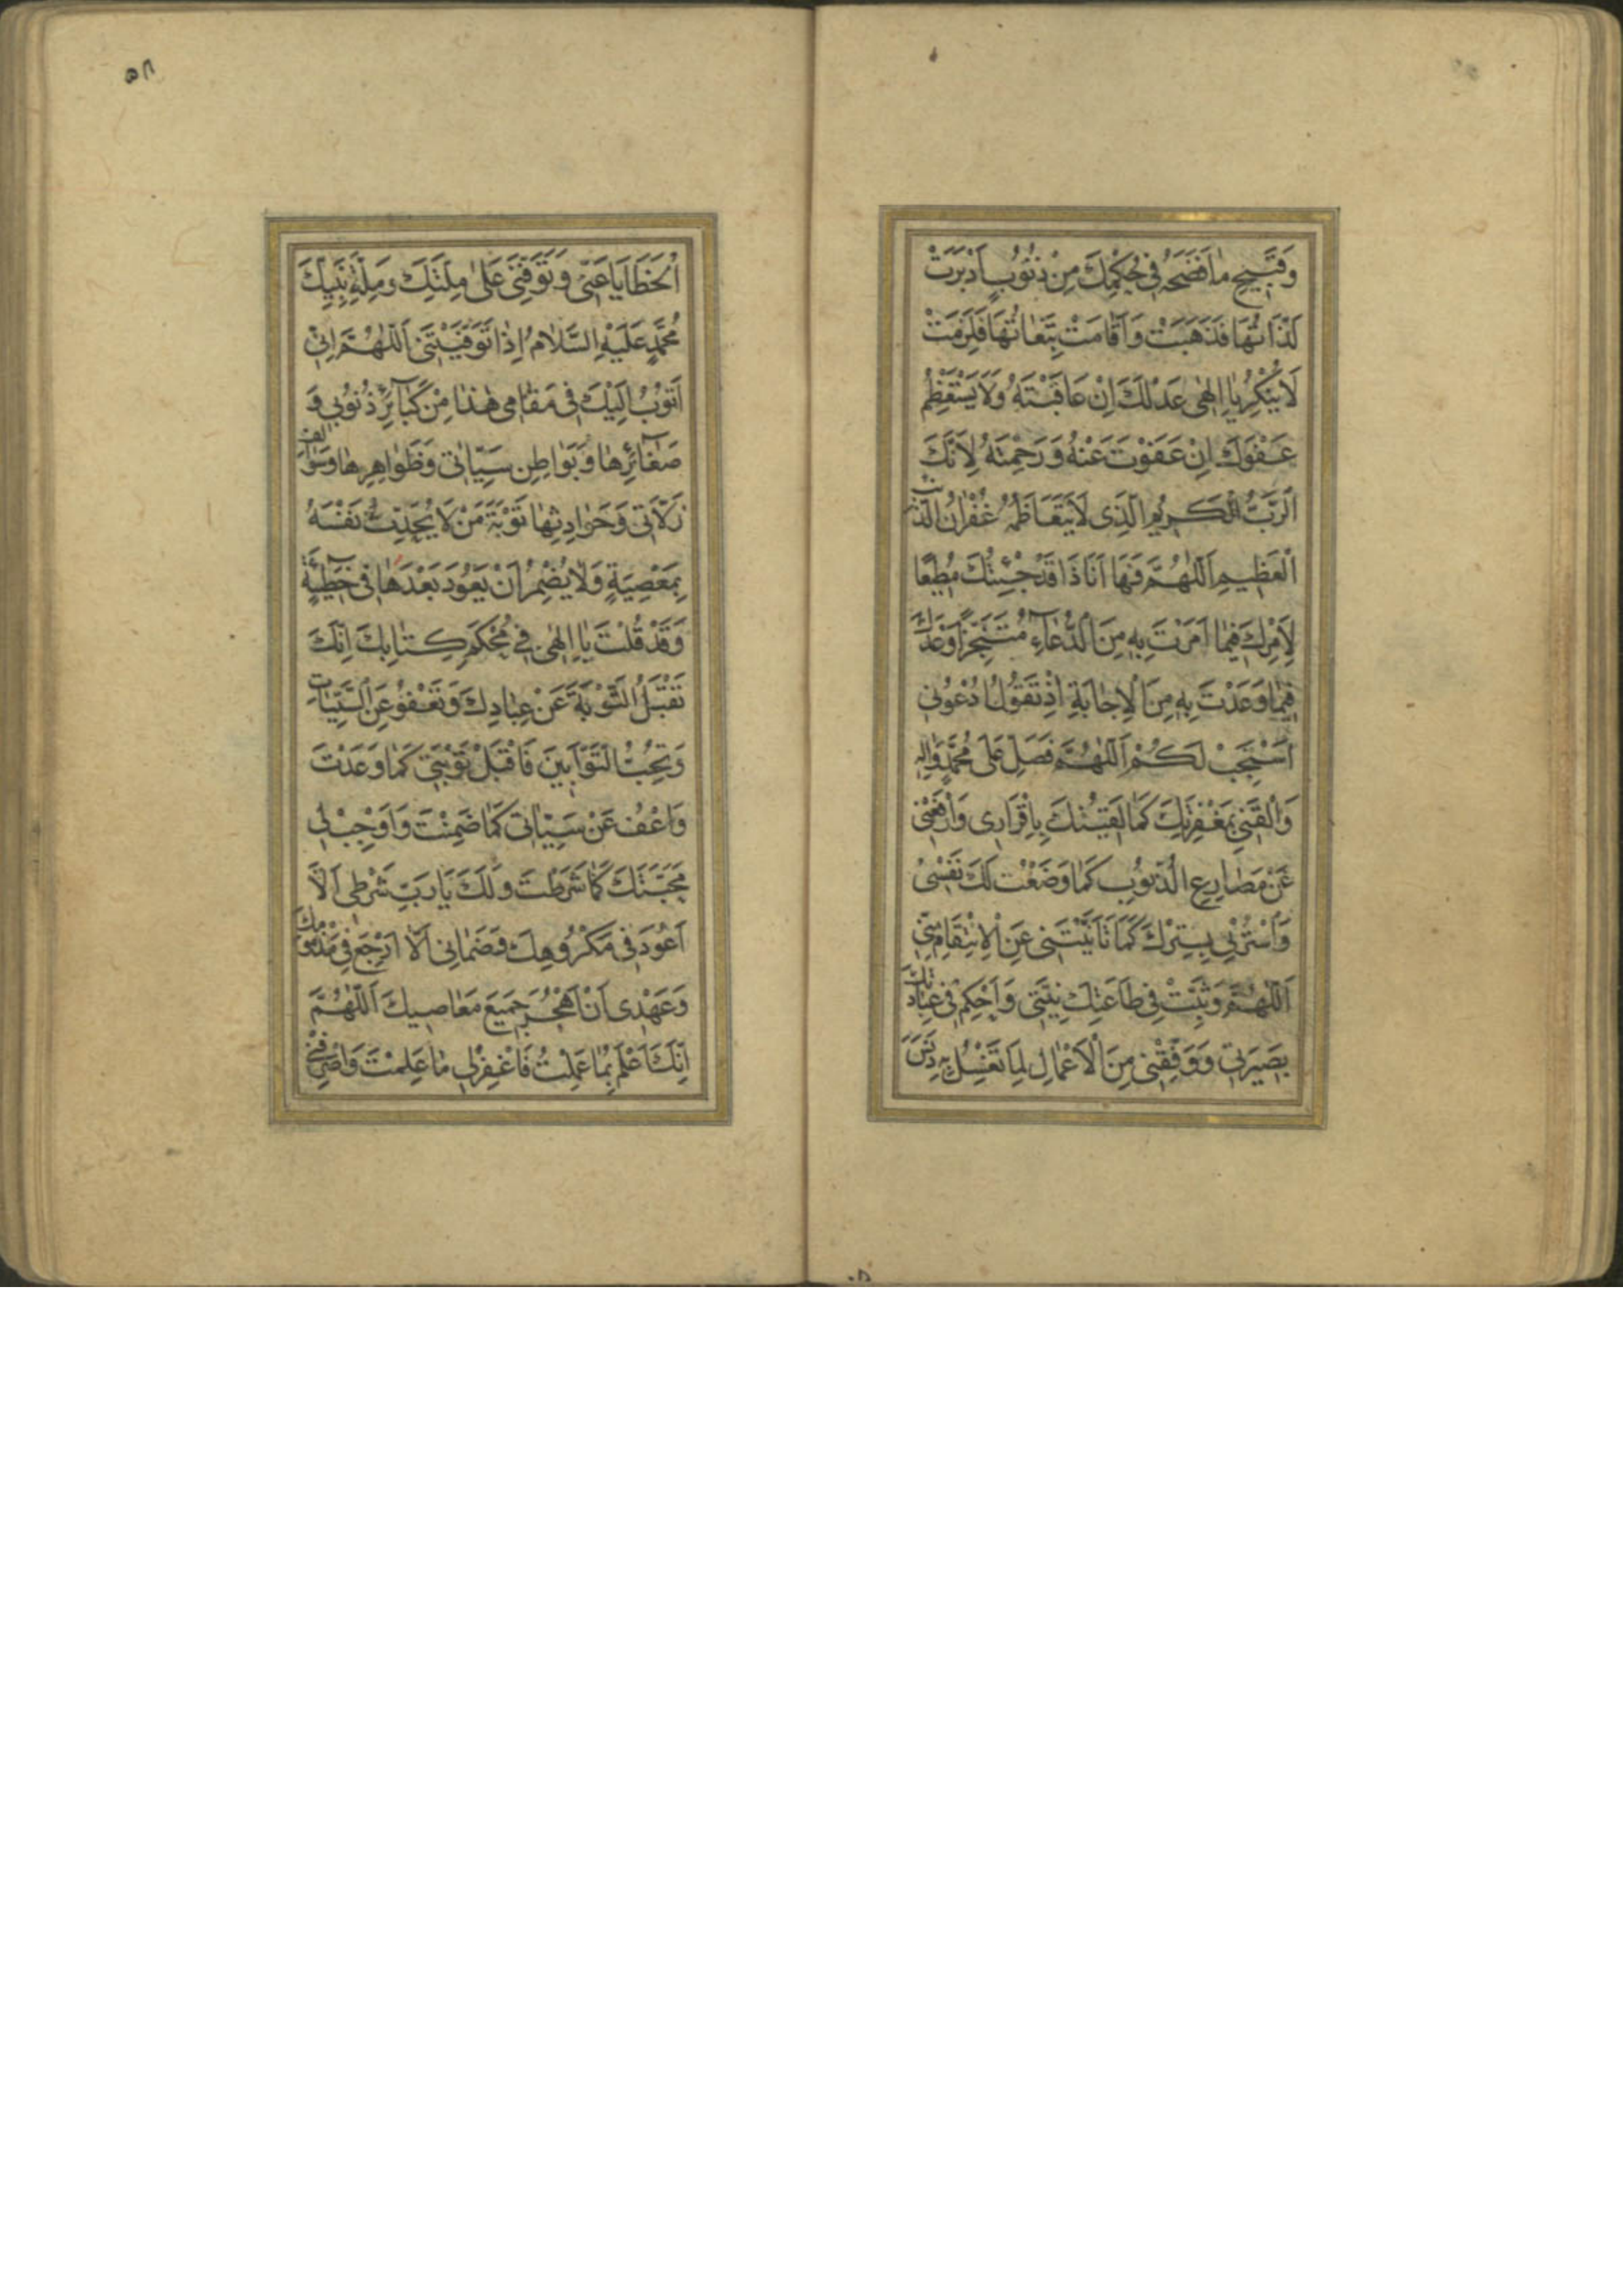 وَقَبِيحِ مَا فَضَحَهُ فِي حُكْمِكَ مِنْ ذُنُوبٍ اَدْبَرَتْ
لَذَّاتُهَا فَذَهَبَتْ وَاَقَامَتْ تَبِعَاتُهَا فَلَزِمَتْ
لَا يُنْكِرُ يَا اِلٰهِى عَدْلَكَ اِنْ عَاقَبْتَهُ وَلَا يَسْتَعْظِمُ
عَفْوَكَ اِنْ عَفَوْتَ عَنْهُ وَرَحِمْتَهُ لِاَنَّكَ
اَلرَّبُّ الْكَرِيمُ الَّذِى لَا يَتَعَاظَمُهُ غُفْرَانُ الذَّنْبِ
الْعَظِيمِ اَللّٰهُمَّ فَهَا اَنَا ذَا قَدْ جِئْتُكَ مُطِيعًا
لِاَمْرِكَ فِيمَا اَمَرْتَ بِهِ مِنَ الدُّعَآءِ مُتَنَجِّزًا وَعْدَكَ
فِيمَا وَعَدْتَ بِهِ مِنَ الْاِجَابَةِ اِذْ تَقُولُ ادْعُونِي
اَسْتَجِبْ لَكُمْ اَللّٰهُمَّ فَصَلِّ عَلَى مُحَمَّدٍ وَاٰلِهِ
وَالْقَنِي بِمَغْفِرَتِكَ كَمَا لَقِيتُكَ بِاِقْرَارِى وَارْفَعْنِي
عَنْ مَصَارِعِ الذُّنُوبِ كَمَا وَضَعْتُ لَكَ نَفْسِىْ
وَاسْتُرْنِي بِسِتْرِكَ كَمَا تَاَنَّيْتَنِى عَنِ الْاِنْتِقَامِ مِنِّى
اَللّٰهُمَّ وَثَبِّتْ فِي طَاعَتِكَ نِيَّتِى وَاَحْكِمْ فِي عِبَادَتِكَ
بَصِيرَتِى وَوَفِّقْنِى مِنَ الْاَعْمَالِ لِمَا تَغْسِلُ بِهِ دَنَسَ
٥٨
اَلْخَطَايَا عَنِّى وَتَوَفَّنِى عَلٰى مِلَّتِكَ وَمِلَّةِ نَبِيِّكَ
مُحَمَّدٍ عَلَيْهِ السَّلَامُ اِذَا تَوَفَّيْتَنِى اَللّٰهُمَّ اِنِّى
اَتُوبُ اِلَيْكَ فِى مَقَامِى هٰذَا مِنْ كَبَآئِرِ ذُنُوبِى وَ
صَغَآئِرِهَا وَبَوَاطِنِ سَيِّئَاتِى وَظَوَاهِرِهَا وَسَوَالِفِ
زَلَّاتِى وَحَوَادِثِهَا تَوْبَةَ مَنْ لَا يُحَدِّثُ نَفْسَهُ
بِمَعْصِيَةٍ وَلَا يُضْمِرُ اَنْ يَعُودَ بَعْدَهَا فِى خَطِيٓئَةٍ
وَقَدْ قُلْتَ يَا اِلٰهِى فِي مُحْكَمِ كِتَابِكَ اِنَّكَ
تَقْبَلُ التَّوْبَةَ عَنْ عِبَادِكَ وَتَعْفُو عَنِ السَّيِّئَاتِ
وَتُحِبُّ التَّوَّابِينَ فَاقْبَلْ تَوْبَتِى كَمَا وَعَدْتَ
وَاعْفُ عَنْ سَيِّئَاتِى كَمَا ضَمِنْتَ وَاَوْجِبْ لِى
مَحَبَّتَكَ كَمَا شَرَطْتَ وَلَكَ يَا رَبِّ شَرْطِى اَلَّا
اَعُودَ فِى مَكْرُوهِكَ وَضَمَانِى اَلَّا اَرْجِعَ فِى مَذْمُومِكَ
وَعَهْدِى اَنْ اَهْجُرَ جَمِيعَ مَعَاصِيكَ اَللّٰهُمَّ
اِنَّكَ اَعْلَمُ بِمَا عَمِلْتُ فَاغْفِرْلِى مَا عَلِمْتَ وَاصْرِفْنِى